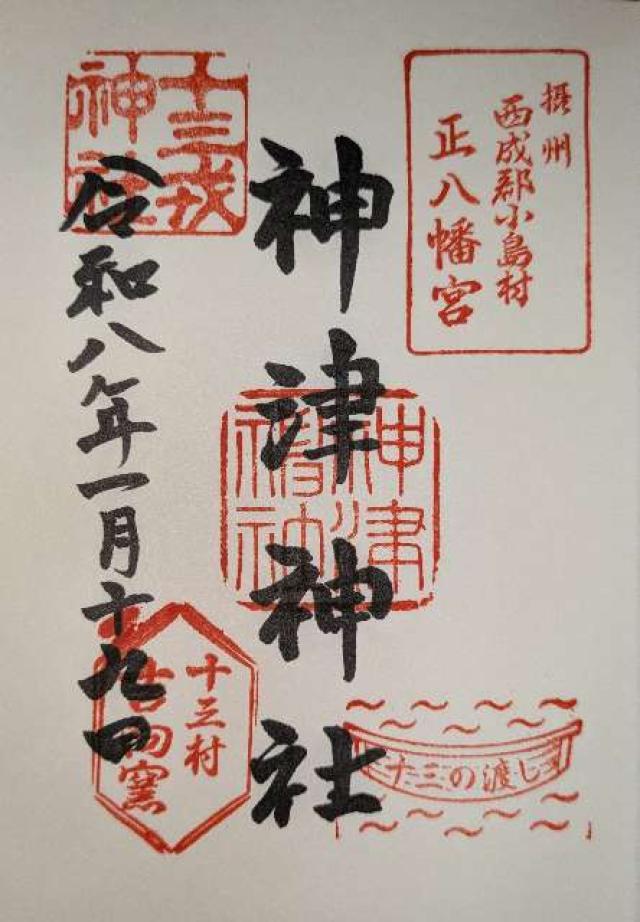 摂州
西成郡小島村
正八幡宮
神津神社
神津
神社
十三の渡し
十三戎
神社
十三村
窯
令和八年一月十九日